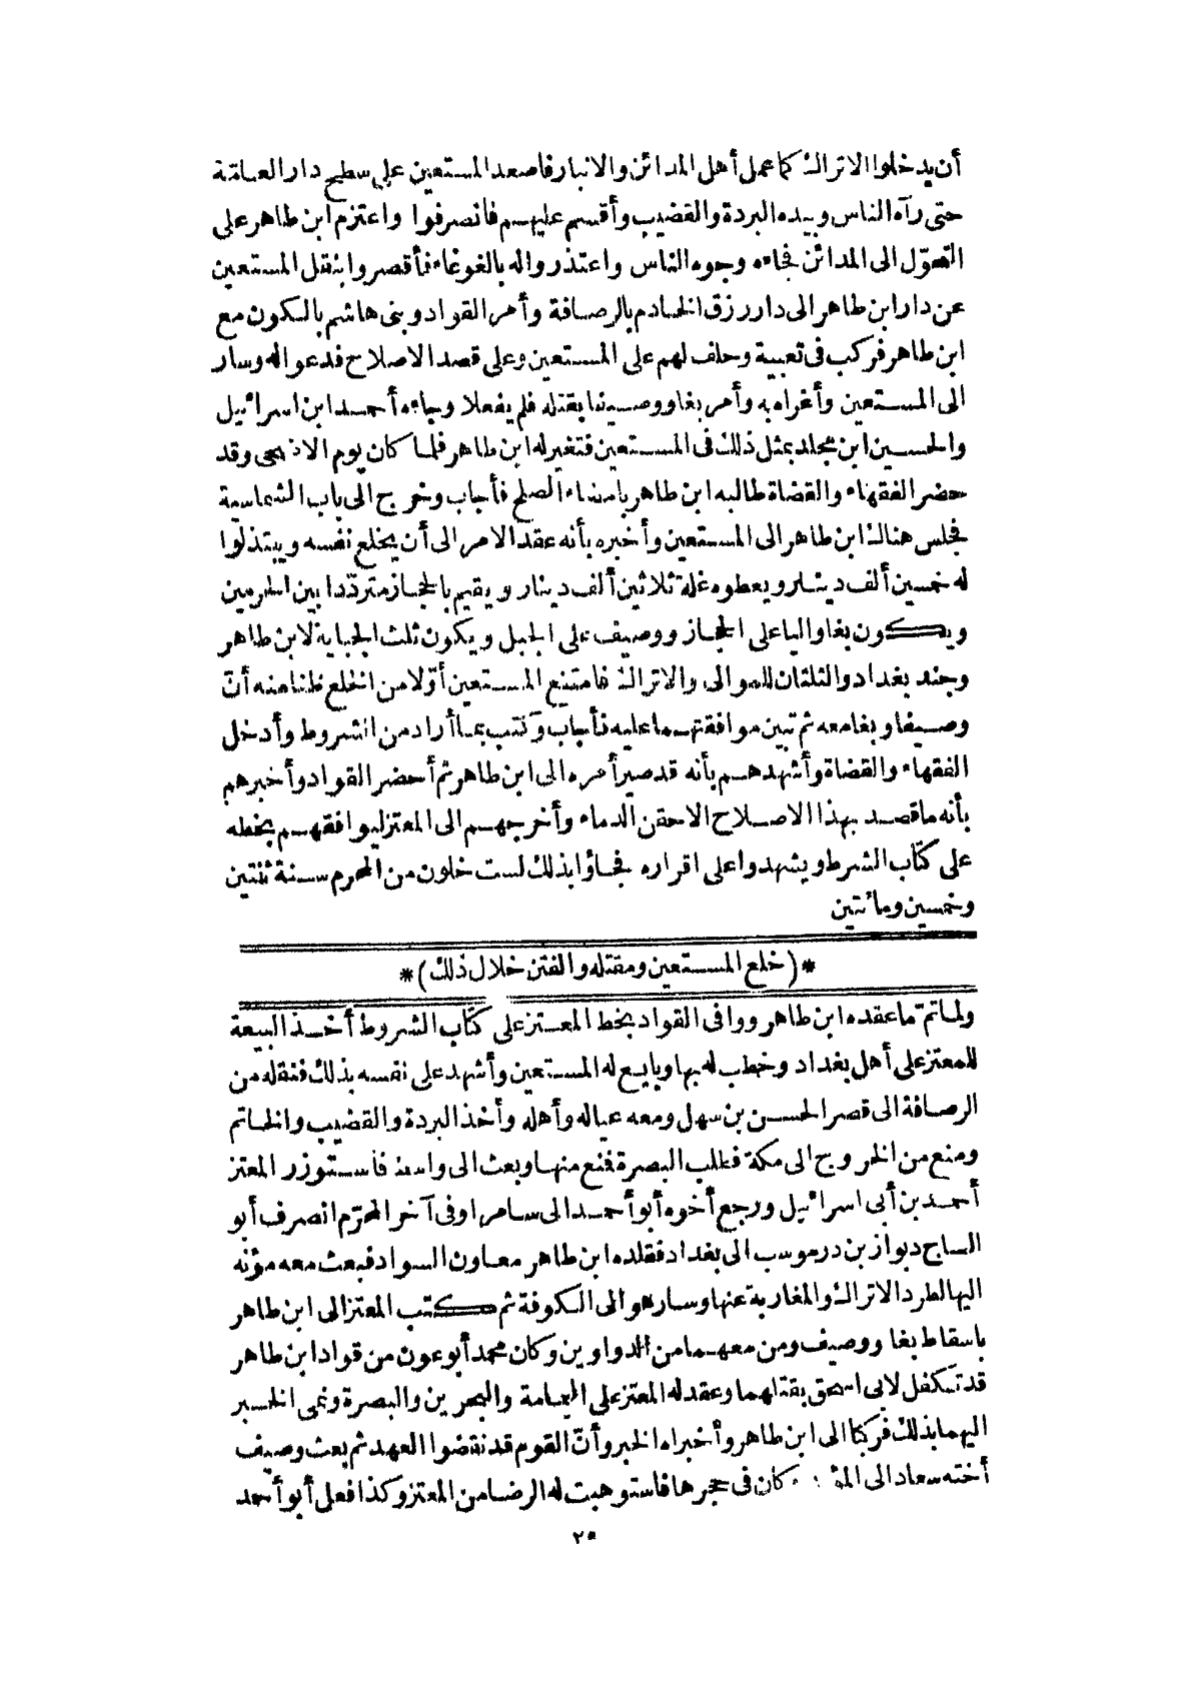 أن يدخلوا الاتراك كما عمل أهل المدائن والانبار فاصعد المستعين على سطح دار العامّة
حتى رآه الناس وبيده البردة والقضيب وأقسم عليهم فانصرفوا واعتزم ابن طاهر على
التحوّل الى المدائن فجاءه وجوه الناس واعتذروا له بالغوغاء فأقصر وانتقل المستعين
عن دار ابن طاهر الى دار رزق الخادم بالرصافة وأمر القواد وبنى هاشم بالكون مع
ابن طاهر فركب فى تعبية وحلف لهم على المستعين وعلى قصد الاصلاح فدعوا له وسار
الى المستعين وأغراه به وأمر بغا ووصيفا بقتله فلم يفعلا وجاءه أحمد ابن اسرائيل
والحسين ابن مخلد بمثل ذلك فى المستعين فتغير له ابن طاهر فلما كان يوم الاضحى وقد
حضر الفقهاء والقضاة طالبه ابن طاهر بامضاء الصلح فأجاب وخرج الى باب الشماسية
فجلس هنالك ابن طاهر الى المستعين وأخبره بأنه عقد الامر الى أن يخلع نفسه ويبتذلوا
له خمسين ألف دينار ويعطوه غلة ثلاثين ألف دينار ويقيم بالحجاز متردّدا بين الحرمين
ويكون بغا واليا على الحجاز ووصيف على الجبل ويكون ثلث الجباية لابن طاهر
وجند بغداد والثلثان للموالى والاتراك فامتنع المستعين أوّلا من الخلع ظنا منه أنّ
وصيفا وبغا معه ثم تبين موافقتهما عليه فأجاب وكتب بما أراد من الشروط وأدخل
الفقهاء والقضاة وأشهدهم بأنه قد صير أمره الى ابن طاهر ثم أحضر القواد وأخبرهم
بأنه ما قصد بهذا الاصلاح الا حقن الدماء وأخرجهم الى المعتز ليوافقهم بخطه
على كتّاب الشرط ويشهدوا على اقراره فجاؤا بذلك لست خلون من المحرم سنة ثنتين
وخمسين ومائتين
*(خلع المستعين ومقتله والفتن خلال ذلك)*
ولما تمّ ما عقده ابن طاهر ووافى القواد بخط المعتز على كتّاب الشروط أخذ البيعة
للمعتز على أهل بغداد وخطب له بها وبايع له المستعين وأشهد على نفسه بذلك فنقله من
الرصافة الى قصر الحسن بن سهل ومعه عياله وأهله وأخذ البردة والقضيب والخاتم
ومنع من الخروج الى مكة فطلب البصرة فمنع منها وبعث الى واسط فاستوزر المعتز
أحمد بن أبى اسرائيل ورجع أخوه أبو أحمد الى سامرا وفى آخر المحرّم انصرف أبو
الساج ديواز بن درموسب الى بغداد فقلده ابن طاهر معاون السواد فبعث معه مؤنه
اليها لطرد الاتراك والمغاربة عنها وسار هو الى الكوفة ثم كتب المعتز الى ابن طاهر
باسقاط بغا ووصيف ومن معهما من الدواوين وكان محمد أبو عون من قواد ابن طاهر
قد تكفل لابى اسحق بقتلهما وعقد له المعتز على اليمامة والبحرين والبصرة ونمى الخبر
اليهما بذلك فركبا الى ابن طاهر وأخبراه الخبر وأنّ القوم قد نقضوا العهد ثم بعث وصيف
أخته سعاد الى كان فى حجرها فاستوهبت له الرضا من المعتز وكذا فعل أبو أحمد